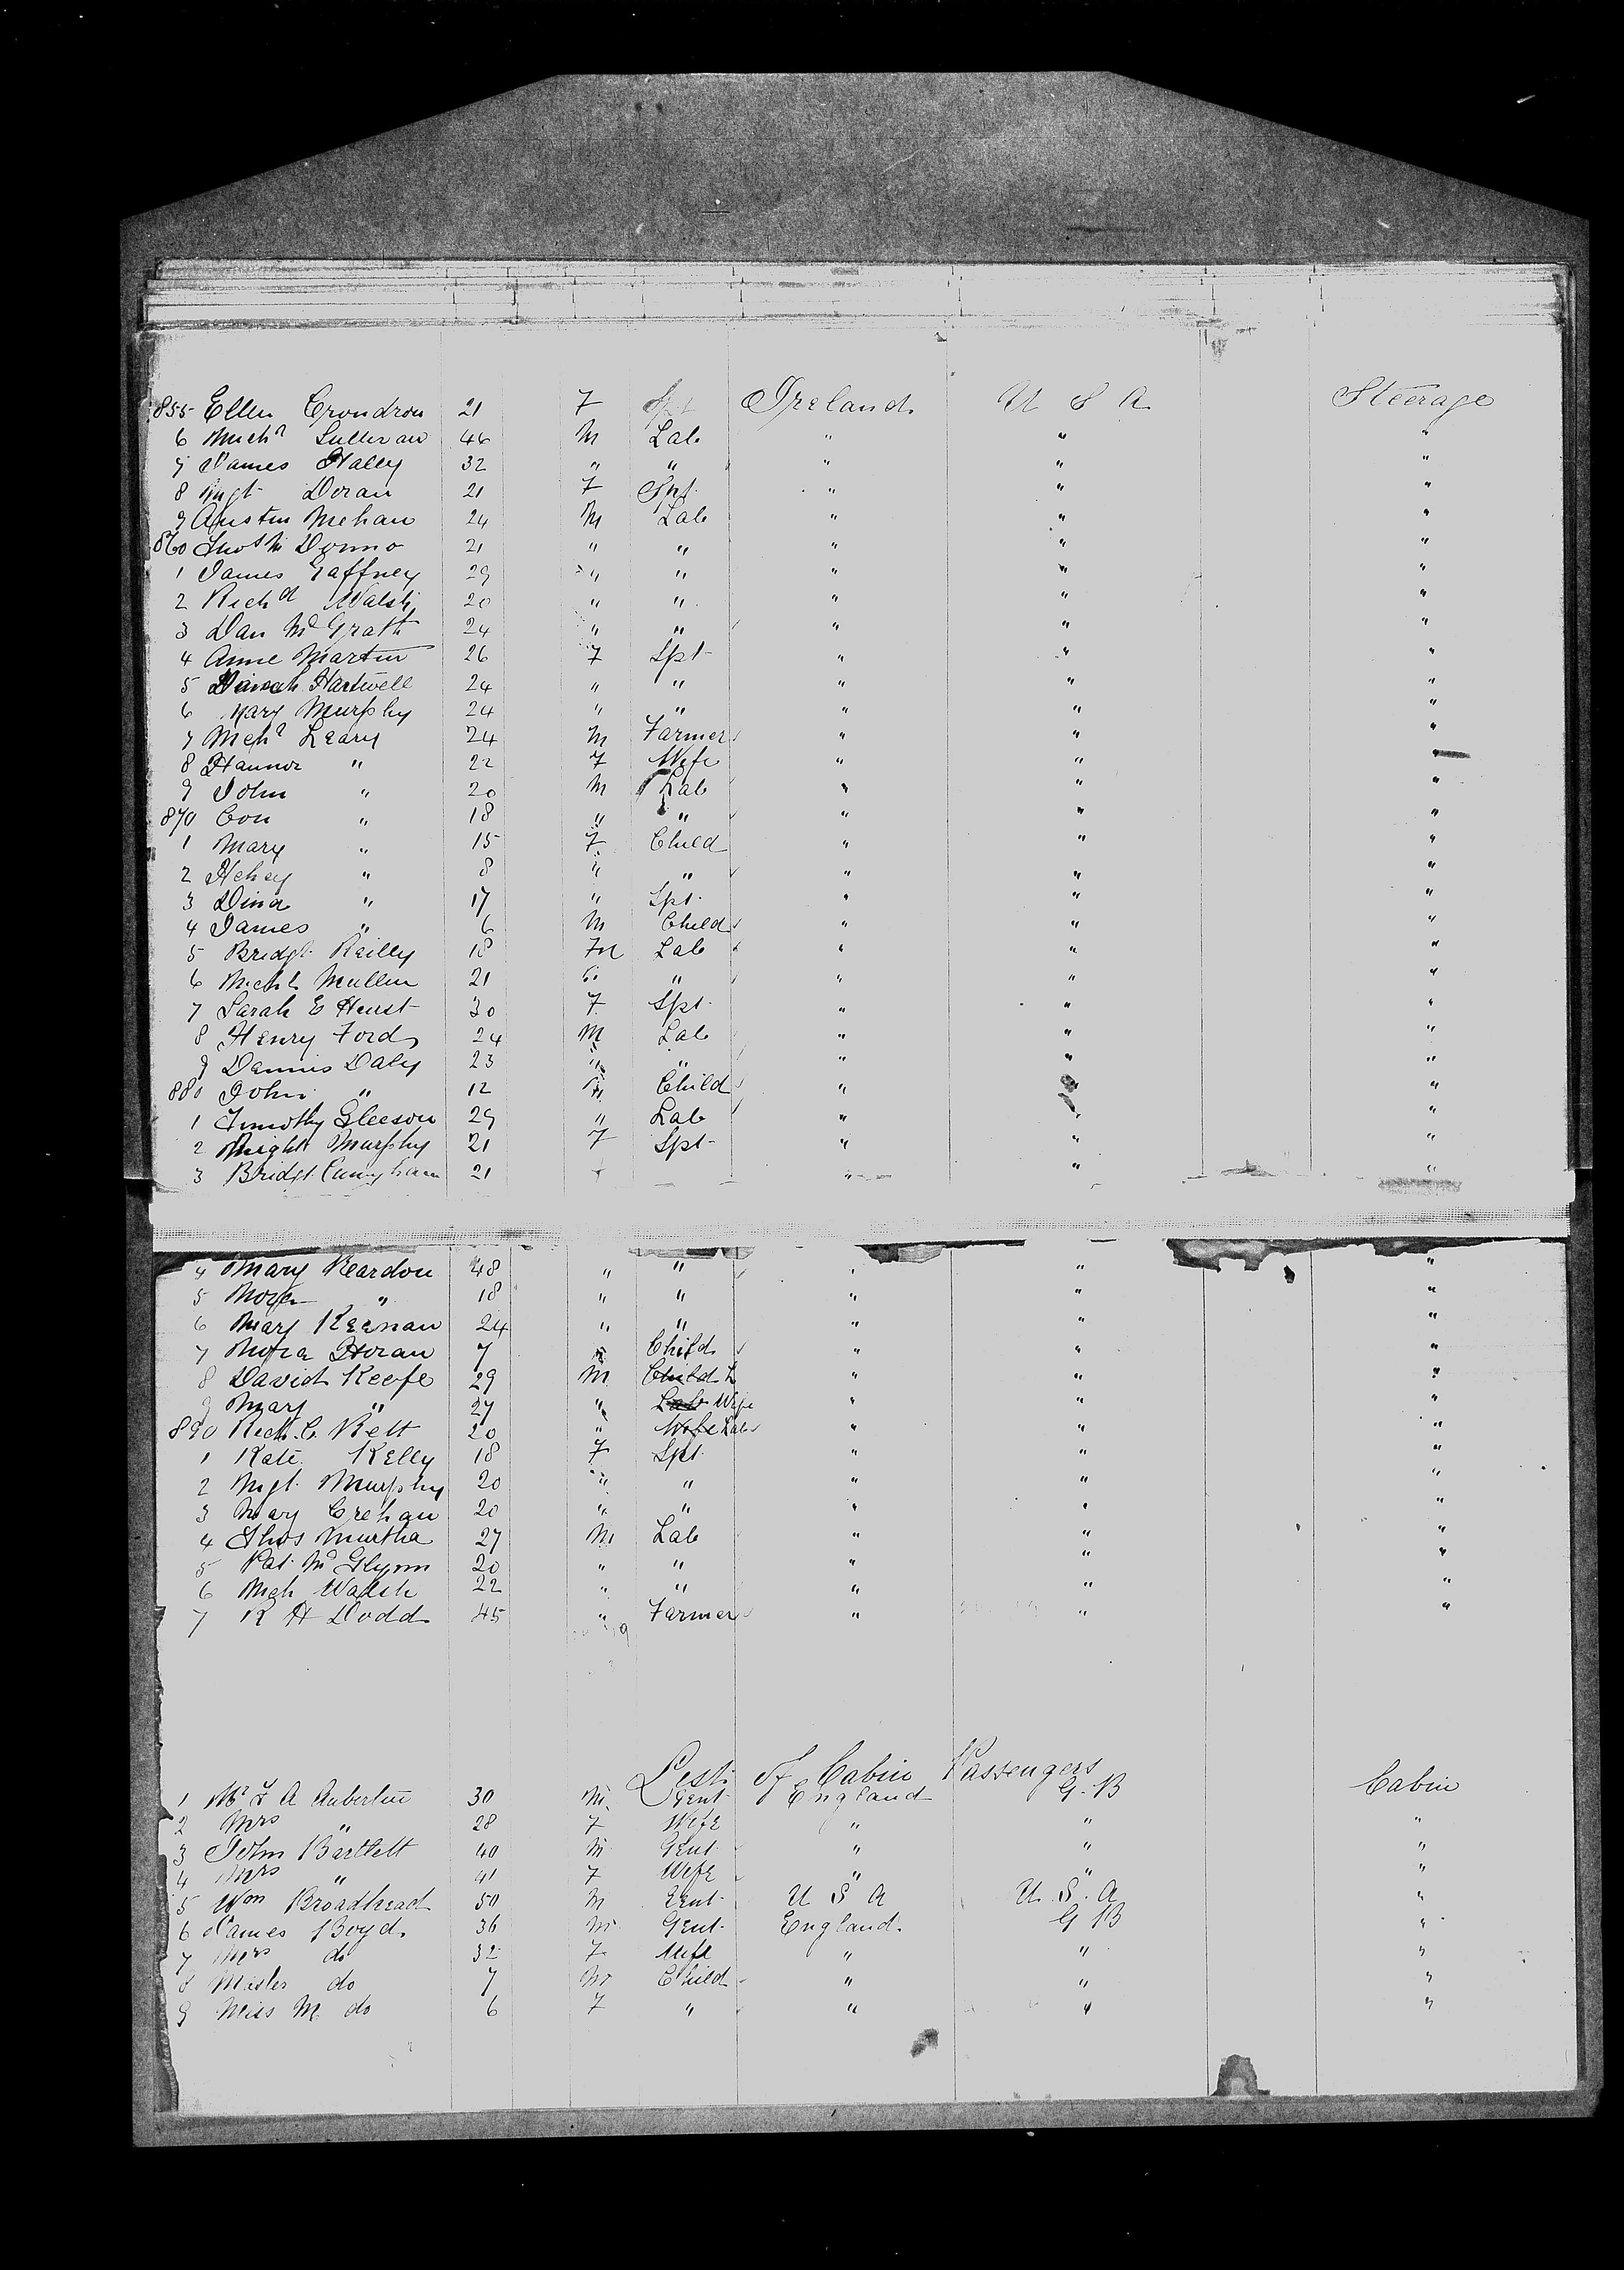 855 Ellen Crondron 21 F Spt Ireland U S A Steerage
6 Michl Sullivan 46 M Lab " " "
7 James Haley 32 " " " " "
8 Mgt Doran 21 F Spt " " "
9 Austin Mehan 24 M Lab " " "
860 21 " " " " "
1 James Gaffney 29 " " " " "
2 Richd Walsh 20 " " " " "
3 Dan McGrath 24 " " " " "
4 Anne Martin 26 F Spt " " "
5 Hartwell 24 " " " " "
6 Mary Murphy 24 " " " " "
7 Michl Leary 24 M Farmer " " "
8 Hannor " 22 F Wife " " "
9 John " 20 M Lab " " "
870 Con " 18 " " " " "
1 Mary " 15 F Child " " "
2 " 8 " " " " "
3 Dina " 17 " Spt " " "
4 James " 6 M Child " " "
5 Bridgt Reilly 18 Lab " " "
6 Michl Mullin 21 " " " " "
7 Sarah E Hurst 30 F Spt " " "
8 Henry Ford 24 M Lab " " "
9 Dennis Daly 23 " " " " "
880 John " 12 " Child " " "
1 Timothy Gleeson 29 " Lab " " "
2 Murphy 21 F Spt " " "
3 Bridgt Cunygham 21 " " " "
4 Mary Reardon 48 " " " " "
5 " 18 " " " " "
6 Mary Keenan 24 " " " " "
7 Nora Horan 7 " Child " " "
8 David Keefe 29 M Child L " " "
9 Mary " 27 " Lab Wife " " "
890 Rich. C. Kett 20 " Wife Lab " " "
1 Kate Kelly 18 F Spt " " "
2 Mgt. Murphy 20 " " " " "
3 Mary Crehan 20 " " " " "
4 Thos Murtha 27 M Lab " " "
5 Pat McGlynn 20 " " " " "
6 Mich Walsh 22 " " " " "
7 R H Dodd 45 " Farmer " " "
List of Cabin Passengers
1 Mr F A Aubertin 30 M Gent England G.B Cabin
2 Mrs " 28 F Wife " " "
3 John Bartlett 40 M Gent " " "
4 Mrs " 41 F Wife " " "
5 Wm Broadhead 50 M Gent U S A U. S. A "
6 James Boyd 36 M Gent England G B "
7 Mrs do 32 F Wife " " "
8 Master do 7 M Child " " "
9 Miss M do 6 F " " " "